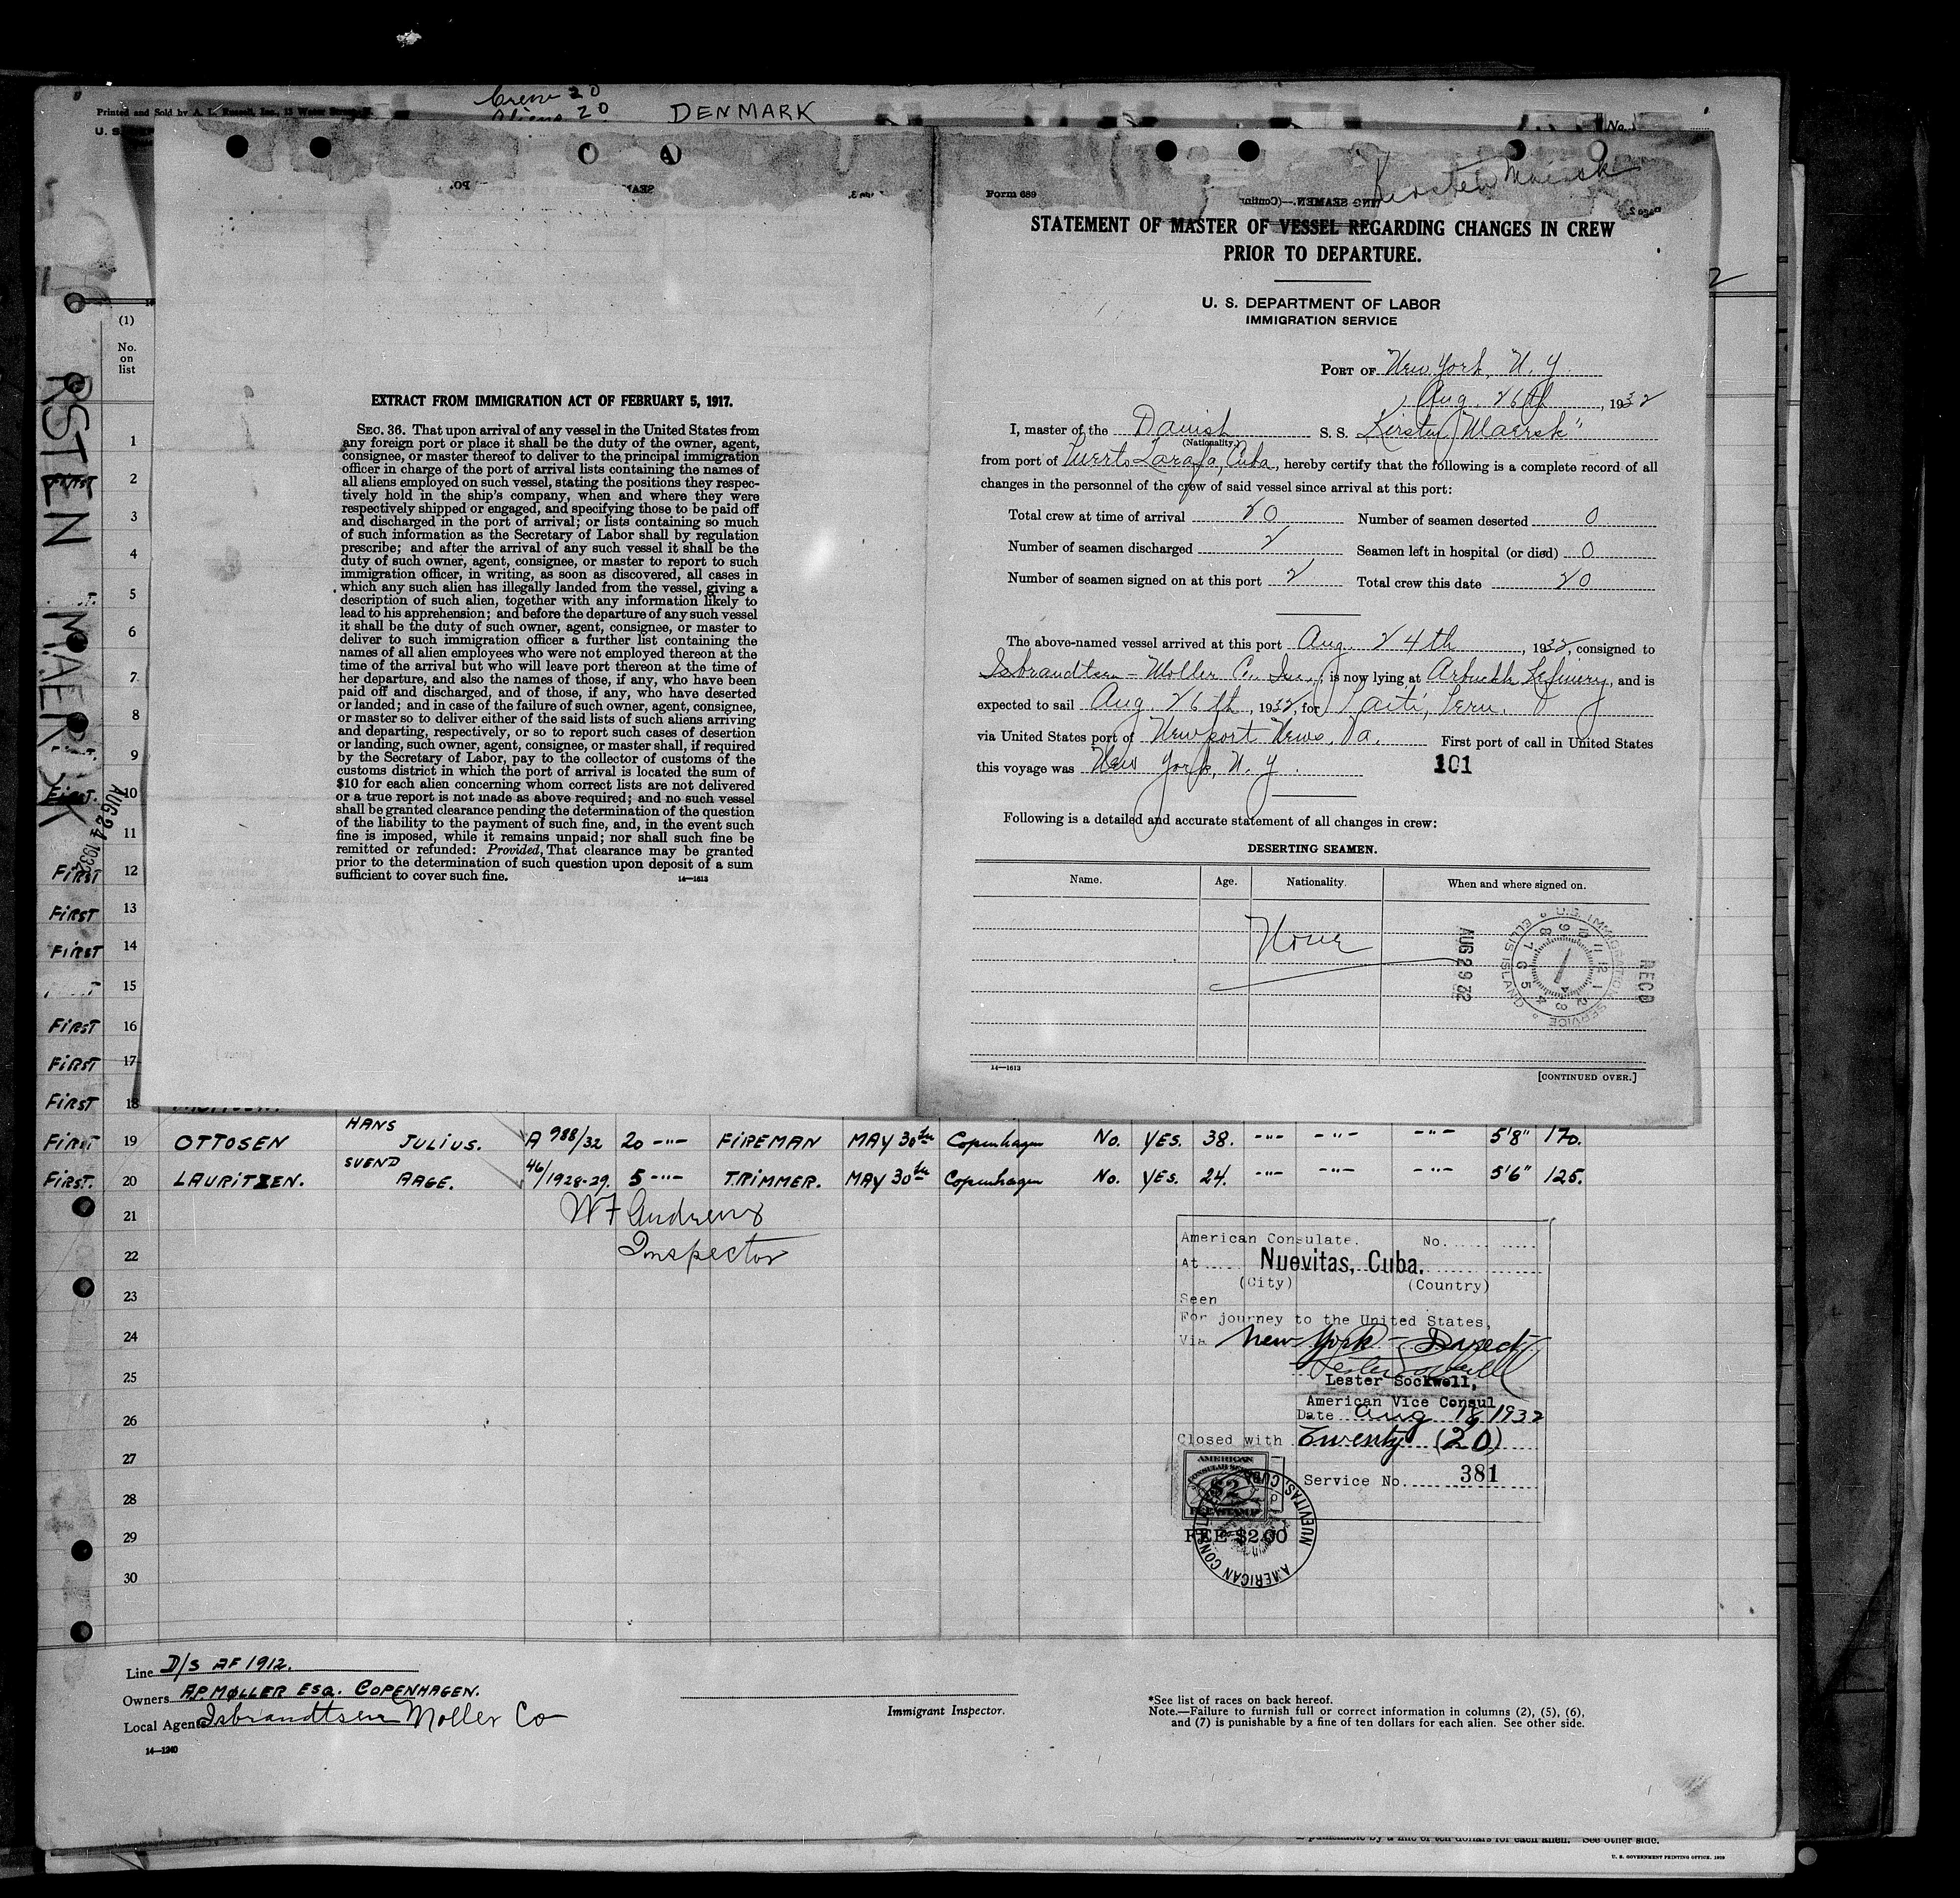 Printed and Sold by A. L. Russell, Inc., 15 Water
Crew 20
Aliens 20
DENMARK
U. S.
No.
(1)
No.
on
list
KERSTEN MAERSK
AUG 24 1932
EXTRACT FROM IMMIGRATION ACT OF FEBRUARY 5, 1917.
SEC. 36. That upon arrival of any vessel in the United States from
any foreign port or place it shall be the duty of the owner, agent,
consignee, or master thereof to deliver to the principal immigration
officer in charge of the port of arrival lists containing the names of
all aliens employed on such vessel, stating the positions they respec-
tively hold in the ship's company, when and where they were
respectively shipped or engaged, and specifying those to be paid off
and discharged in the port of arrival; or lists containing so much
of such information as the Secretary of Labor shall by regulation
prescribe; and after the arrival of any such vessel it shall be the
duty of such owner, agent, consignee, or master to report to such
immigration officer, in writing, as soon as discovered, all cases in
which any such alien has illegally landed from the vessel, giving a
description of such alien, together with any information likely to
lead to his apprehension; and before the departure of any such vessel
it shall be the duty of such owner, agent, consignee, or master to
deliver to such immigration officer a further list containing the
names of all alien employees who were not employed thereon at the
time of the arrival but who will leave port thereon at the time of
her departure, and also the names of those, if any, who have been
paid off and discharged, and of those, if any, who have deserted
or landed; and in case of the failure of such owner, agent, consignee,
or master so to deliver either of the said lists of such aliens arriving
and departing, respectively, or so to report such cases of desertion
or landing, such owner, agent, consignee, or master shall, if required
by the Secretary of Labor, pay to the collector of customs of the
customs district in which the port of arrival is located the sum of
$10 for each alien concerning whom correct lists are not delivered
or a true report is not made as above required; and no such vessel
shall be granted clearance pending the determination of the question
of the liability to the payment of such fine, and, in the event such
fine is imposed, while it remains unpaid; nor shall such fine be
remitted or refunded: Provided, That clearance may be granted
prior to the determination of such question upon deposit of a sum
sufficient to cover such fine.
14—1613
Kersten Maersk
Form 689
STATEMENT OF MASTER OF VESSEL REGARDING CHANGES IN CREW
PRIOR TO DEPARTURE.
U. S. DEPARTMENT OF LABOR
IMMIGRATION SERVICE
PORT OF New York, N. Y.
Aug. 26th, 1932
I, master of the Danish S. S. Kirsten "Maersk"
(Nationality)
from port of Puerto Tarafa, Cuba, hereby certify that the following is a complete record of all
changes in the personnel of the crew of said vessel since arrival at this port:
Total crew at time of arrival 20 Number of seamen deserted 0
Number of seamen discharged 2 Seamen left in hospital (or died) 0
Number of seamen signed on at this port 2 Total crew this date 20
The above-named vessel arrived at this port Aug. 24th, 1932, consigned to
Isbrandtsen - Moller Co. Inc., is now lying at Arbuckle Refinery, and is
expected to sail Aug. 26th, 1932, for Paiti, Peru.
via United States port of Newport News, Va. First port of call in United States
this voyage was New York, N. Y.
101
Following is a detailed and accurate statement of all changes in crew:
DESERTING SEAMEN.
Name. Age. Nationality. When and where signed on.
None
AUG 29 32
U.S. IMMIGRATION SERVICE ELLIS ISLAND
RECD
14—1613
[CONTINUED OVER.]
1
2
3
4
5
6
7
8
9
First. 10
11
First 12
First 13
First 14
15
First 16
First 17
First 18
First 19 OTTOSEN HANS JULIUS. A 988/32 20 -"- FIREMAN MAY 30th Copenhagen No. YES. 38. -"- -"- -"- 5'8" 170.
First. 20 LAURITZEN. SVEND AAGE. 46/1928-29. 5 -"- TRIMMER. MAY 30th Copenhagen No. YES. 24. -"- -"- -"- 5'6" 125.
21
22
23
24
25
26
27
28
29
30
W F Andrews
Inspector
American Consulate. No.
At Nuevitas, Cuba.
(City) (Country)
Seen
For journey to the United States,
Via New York - Direct
Lester Sockwell,
American Vice Consul
Date Aug 18, 1932
Closed with Twenty (20)
Service No. 381
AMERICAN
CONSULAR SERVICE
$2
FEE STAMP
FEE $2.00
AMERICAN CONSULATE NUEVITAS, CUBA
Line D/S AF 1912.
Owners A.P. MØLLER ESQ. COPENHAGEN.
Local Agents Isbrandtsen Moller Co
14—1240
Immigrant Inspector.
*See list of races on back hereof.
Note.—Failure to furnish full or correct information in columns (2), (5), (6),
and (7) is punishable by a fine of ten dollars for each alien. See other side.
is punishable by a fine of ten dollars for each alien. See other side.
U. S. GOVERNMENT PRINTING OFFICE. 1929